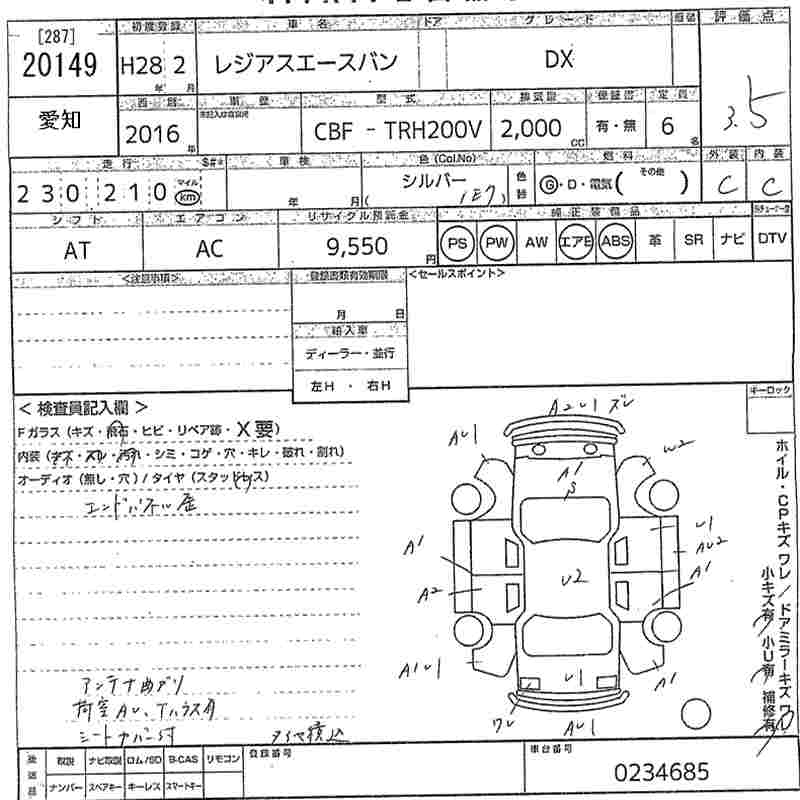 [287]
20149
初度登録
車名
ドア
グレード
評価点
H28 2
年 月
レジアスエースバン
DX
3.5
愛知
西暦
車歴
型式
排気量
保証書
定員
2016 年
CBF - TRH200V
2,000 CC
有・無
6 名
走行
車検
色(Col.No)
燃料
外装
内装
230,210
マイル
km
年 月
シルバー
(1E7)
色替
G・D・電気( その他 )
C
C
シフト
エアコン
リサイクル預託金
純正装備品
AT
AC
9,550 円
PS PW AW エアB ABS 革 SR ナビ DTV
<注意事項>
登録書類有効期限
<セールスポイント>
月 日
輸入車
ディーラー・並行
左H ・ 右H
キーロック
< 検査員記入欄 >
Fガラス(キズ・飛石・ヒビ・リペア跡・X要)
内装(キズ・スレ・汚れ・シミ・コゲ・穴・キレ・破れ・割れ)
オーディオ(無し・穴)/タイヤ(スタッドレス)
エンドパネル歪
A2U1 ズレ
AU1
W2
A1
S
U1
A1
AU2
U2
A1
A2
A1U1
U1
A1
ワレ
AU1
ホイル・CPキズ ワレ/ドアミラーキズ ワレ
小キズ有 小U有 補修有
アンテナ曲り
荷室AU、
シートカバー付
タイヤ積込
取説 ナビ取説 ロム/SD B-CAS リモコン
ナンバー スペアキー キーレス スマートキー
登録番号
車台番号
0234685